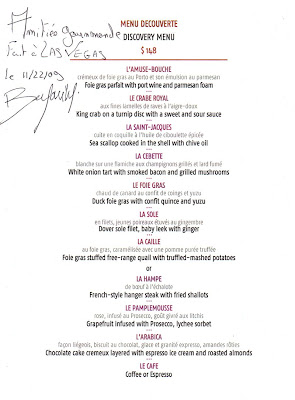 Amitiés gourmande
Fait à LAS VEGAS
le 11/22/09
MENU DECOUVERTE
DISCOVERY MENU
$ 148
L'AMUSE-BOUCHE
crémeux de foie gras au Porto et son émulsion au parmesan
Foie gras parfait with port wine and parmesan foam
LE CRABE ROYAL
aux fines lamelles de raves à l'aigre-doux
King crab on a turnip disc with a sweet and sour sauce
LA SAINT-JACQUES
cuite en coquille à l'huile de ciboulette épicée
Sea scallop cooked in the shell with chive oil
LA CEBETTE
blanche sur une flamiche aux champignons grillés et lard fumé
White onion tart with smoked bacon and grilled mushrooms
LE FOIE GRAS
chaud de canard au confit de coings et yuzu
Duck foie gras with confit quince and yuzu
LA SOLE
en filets, jeunes poireaux étuvés au gingembre
Dover sole filet, baby leek with ginger
LA CAILLE
au foie gras, caramélisée avec une pomme purée truffée
Foie gras stuffed free-range quail with truffled-mashed potatoes
or
LA HAMPE
de bœuf à l'échalote
French-style hanger steak with fried shallots
LE PAMPLEMOUSSE
rose, infusé au Prosecco, goût givré aux litchis
Grapefruit infused with Prosecco, lychee sorbet
L'ARABICA
façon liégeois, biscuit au chocolat, glace et granité expresso, amandes rôties
Chocolate cake cremeux layered with espresso ice cream and roasted almonds
LE CAFE
Coffee or Espresso